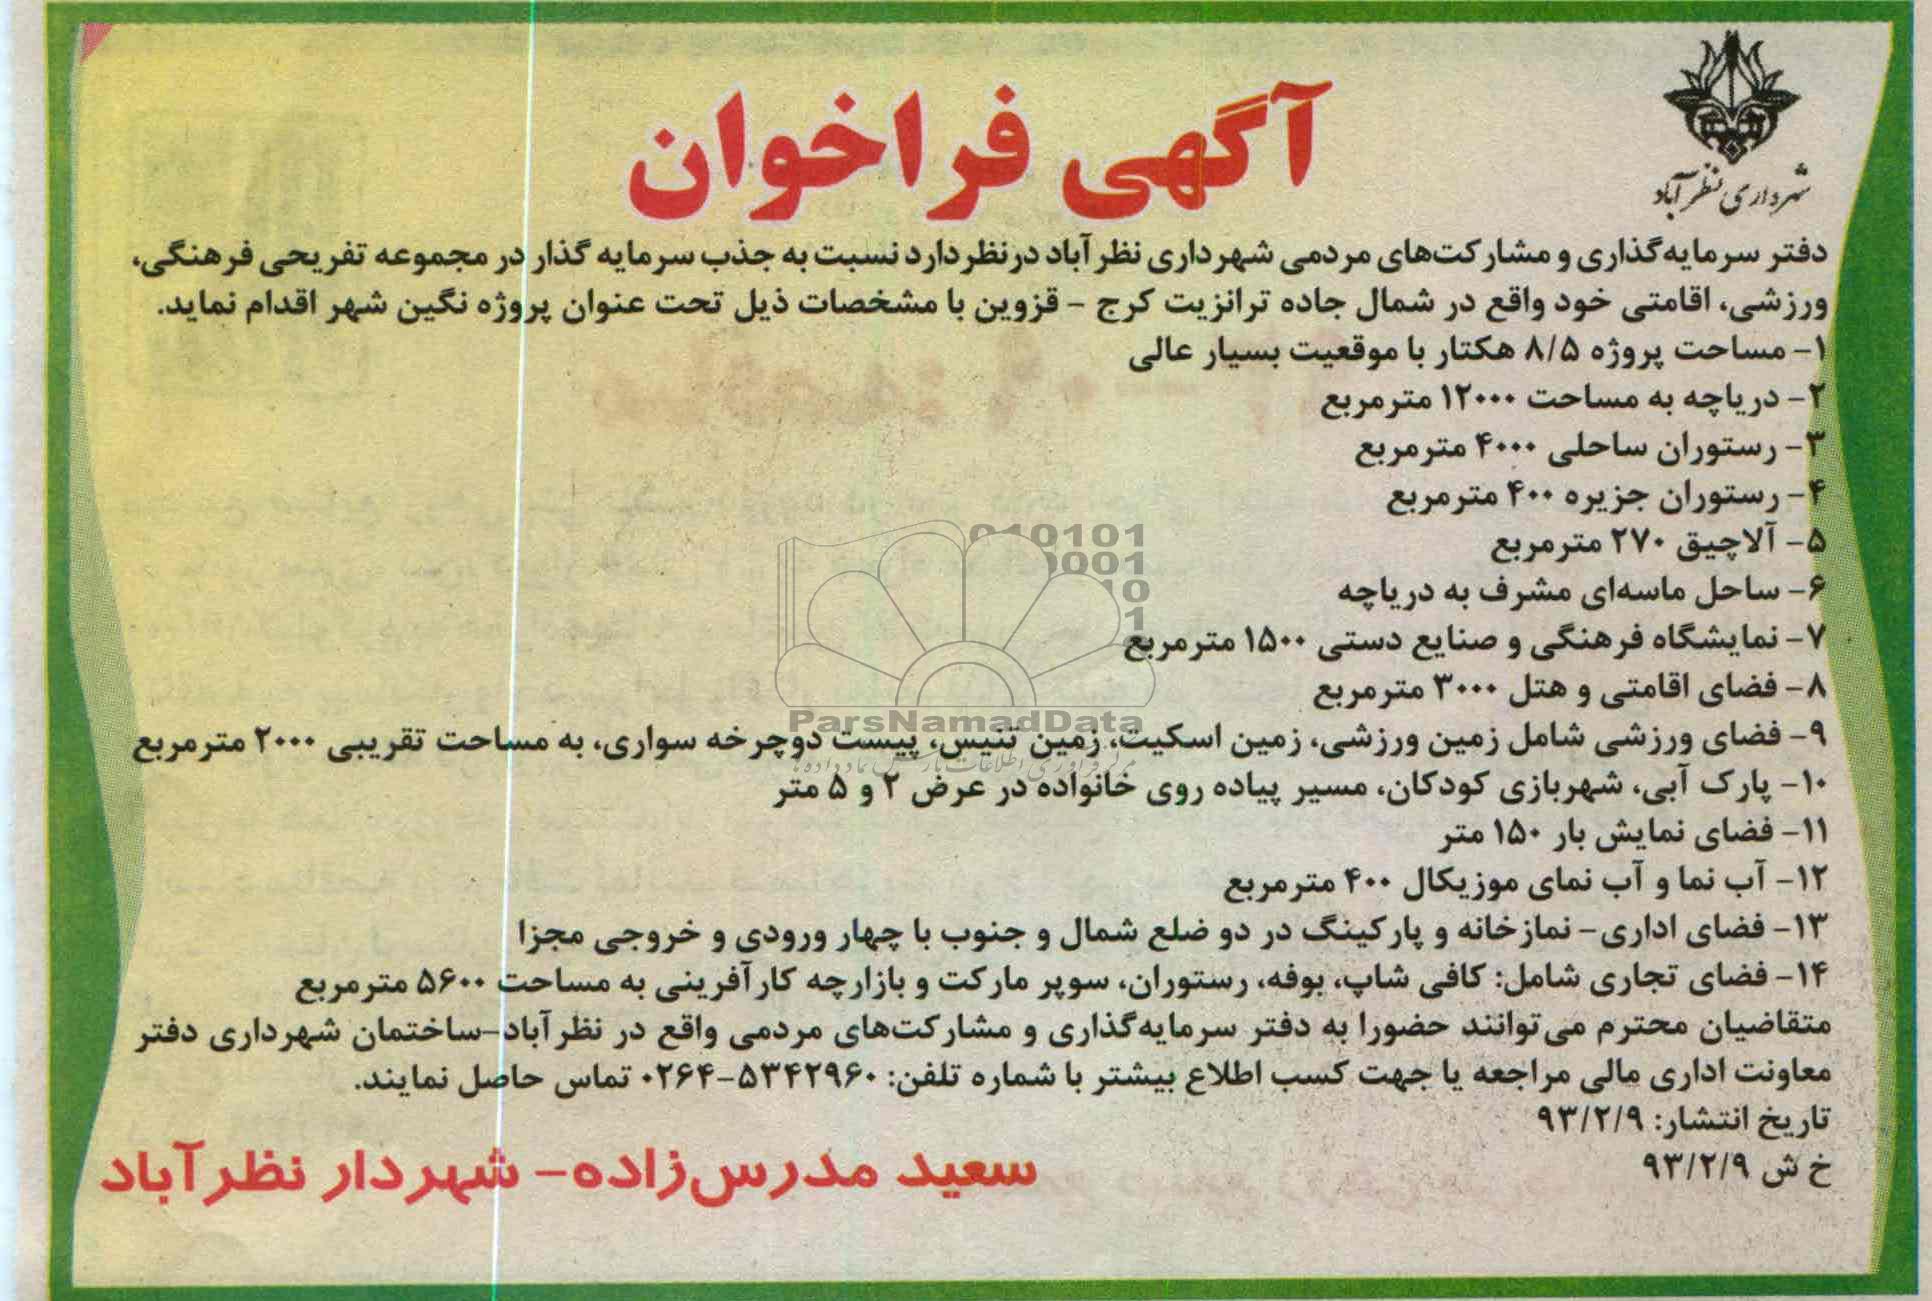 شهرداری نظرآباد
آگهی فراخوان
دفتر سرمایه‌گذاری و مشارکت‌های مردمی شهرداری نظرآباد درنظر دارد نسبت به جذب سرمایه گذار در مجموعه تفریحی فرهنگی،
ورزشی، اقامتی خود واقع در شمال جاده ترانزیت کرج - قزوین با مشخصات ذیل تحت عنوان پروژه نگین شهر اقدام نماید.
۱- مساحت پروژه ۸/۵ هکتار با موقعیت بسیار عالی
۲- دریاچه به مساحت ۱۲۰۰۰ مترمربع
۳- رستوران ساحلی ۴۰۰۰ مترمربع
۴- رستوران جزیره ۴۰۰ مترمربع
۵- آلاچیق ۲۷۰ مترمربع
۶- ساحل ماسه‌ای مشرف به دریاچه
۷- نمایشگاه فرهنگی و صنایع دستی ۱۵۰۰ مترمربع
۸- فضای اقامتی و هتل ۳۰۰۰ مترمربع
۹- فضای ورزشی شامل زمین ورزشی، زمین اسکیت، زمین تنیس، پیست دوچرخه سواری، به مساحت تقریبی ۲۰۰۰ مترمربع
۱۰- پارک آبی، شهربازی کودکان، مسیر پیاده روی خانواده در عرض ۲ و ۵ متر
۱۱- فضای نمایش بار ۱۵۰ متر
۱۲- آب نما و آب نمای موزیکال ۴۰۰ مترمربع
۱۳- فضای اداری- نمازخانه و پارکینگ در دو ضلع شمال و جنوب با چهار ورودی و خروجی مجزا
۱۴- فضای تجاری شامل: کافی شاپ، بوفه، رستوران، سوپر مارکت و بازارچه کارآفرینی به مساحت ۵۶۰۰ مترمربع
متقاضیان محترم می‌توانند حضورا به دفتر سرمایه‌گذاری و مشارکت‌های مردمی واقع در نظرآباد-ساختمان شهرداری دفتر
معاونت اداری مالی مراجعه یا جهت کسب اطلاع بیشتر با شماره تلفن: ۵۳۴۲۹۶۰-۰۲۶۴ تماس حاصل نمایند.
تاریخ انتشار: ۹۳/۲/۹
خ ش ۹۳/۲/۹
سعید مدرس‌زاده- شهردار نظرآباد
010101
0001
10
1
ParsNamadData
مرکز فرآوری اطلاعات پارس نماد داده ها